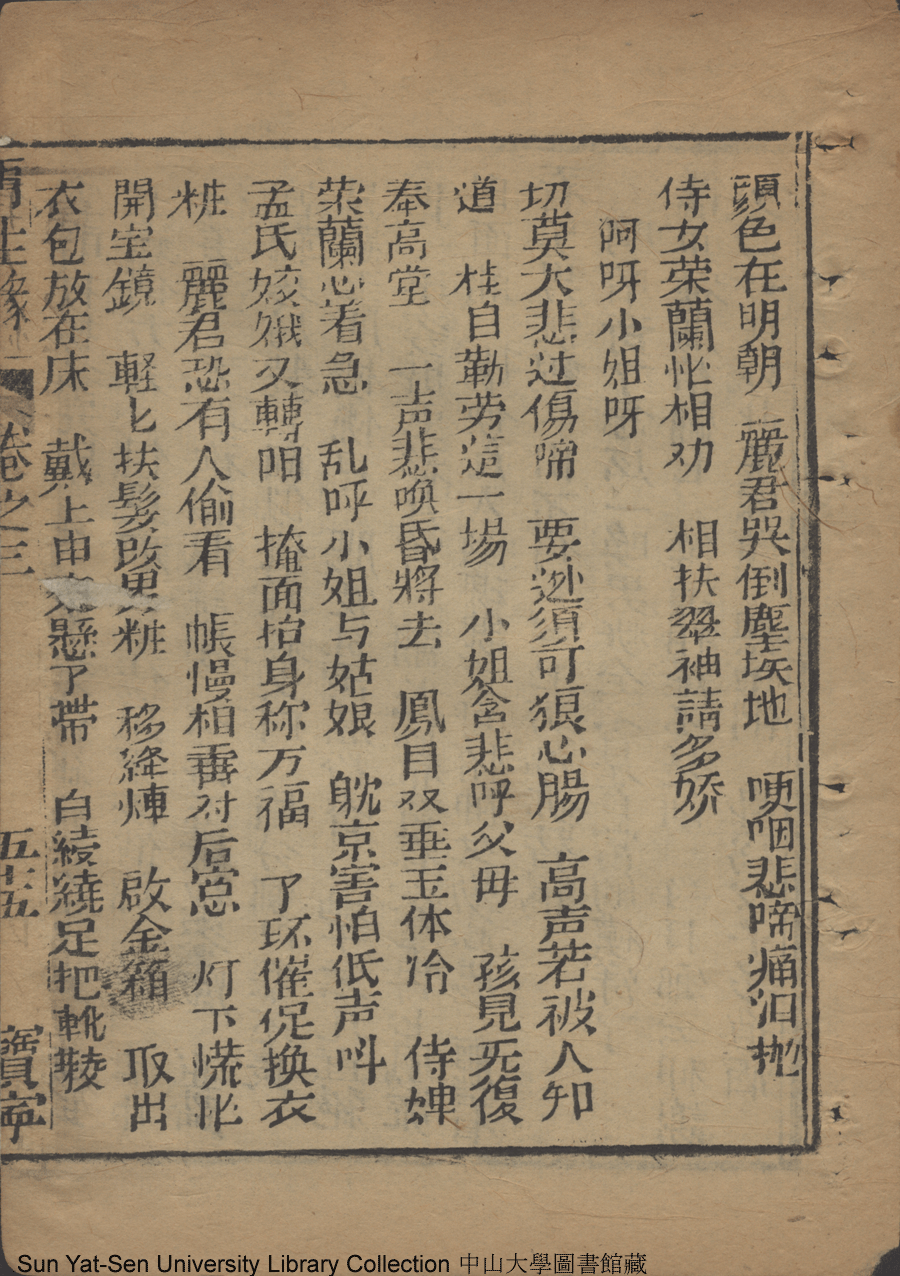 頭色在明朝　麗君哭倒塵埃地　哽咽悲啼痛泪抛
侍女荣蘭忙相劝　相扶翠袖請多娇
呵呀小姐呀
切莫大悲过傷啼　要逃須可狠心腸　高声若被人知
道　枉自勤劳這一場　小姐含悲呼父母　孩見无復
奉高堂　一声悲喚昏將去　鳳目双垂玉体冷　侍婢
荣蘭心着急　乱呼小姐与姑娘　躭京害怕低声呌
孟氏姣娥又轉阳　掩面抬身称万福　了环催促换衣
粧　麗君恐有人偷看　帳慢相垂对后窓　灯下慌忙
開宝鏡　軽匕扶髮改男粧　移絳煙　啟金箱　取出
衣包放在床　戴上巾　懸了帶　白綾繞足把靴鞍
再生緣　卷之三　五十五　寶寧
Sun Yat-Sen University Library Collection 中山大學圖書館藏